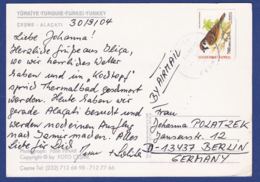 TÜRKİYE-TURQUIE-TÜRKEI-TURKEY
ÇEŞME - ALAÇATI
30/9/04
Liebe Johanna!
Herzliche Grüße aus Ilica,
wo wir herrliches Wetter
haben und im „Kochtopf"
sprich Thermalbad gedünstet
werden. Heute haben wir
gerade Alaçati besucht und
werden noch einen Ausflug
nach Izmir machen. Alles
Liebe für Dich
BY AIRMAIL
Frau
Johanna POLATZEK
Jansenstr. 12
D-13437 BERLIN
GERMANY
Copyright © by FOTO
Çeşme Tel: (232) 713 66 98 - 712 77 66